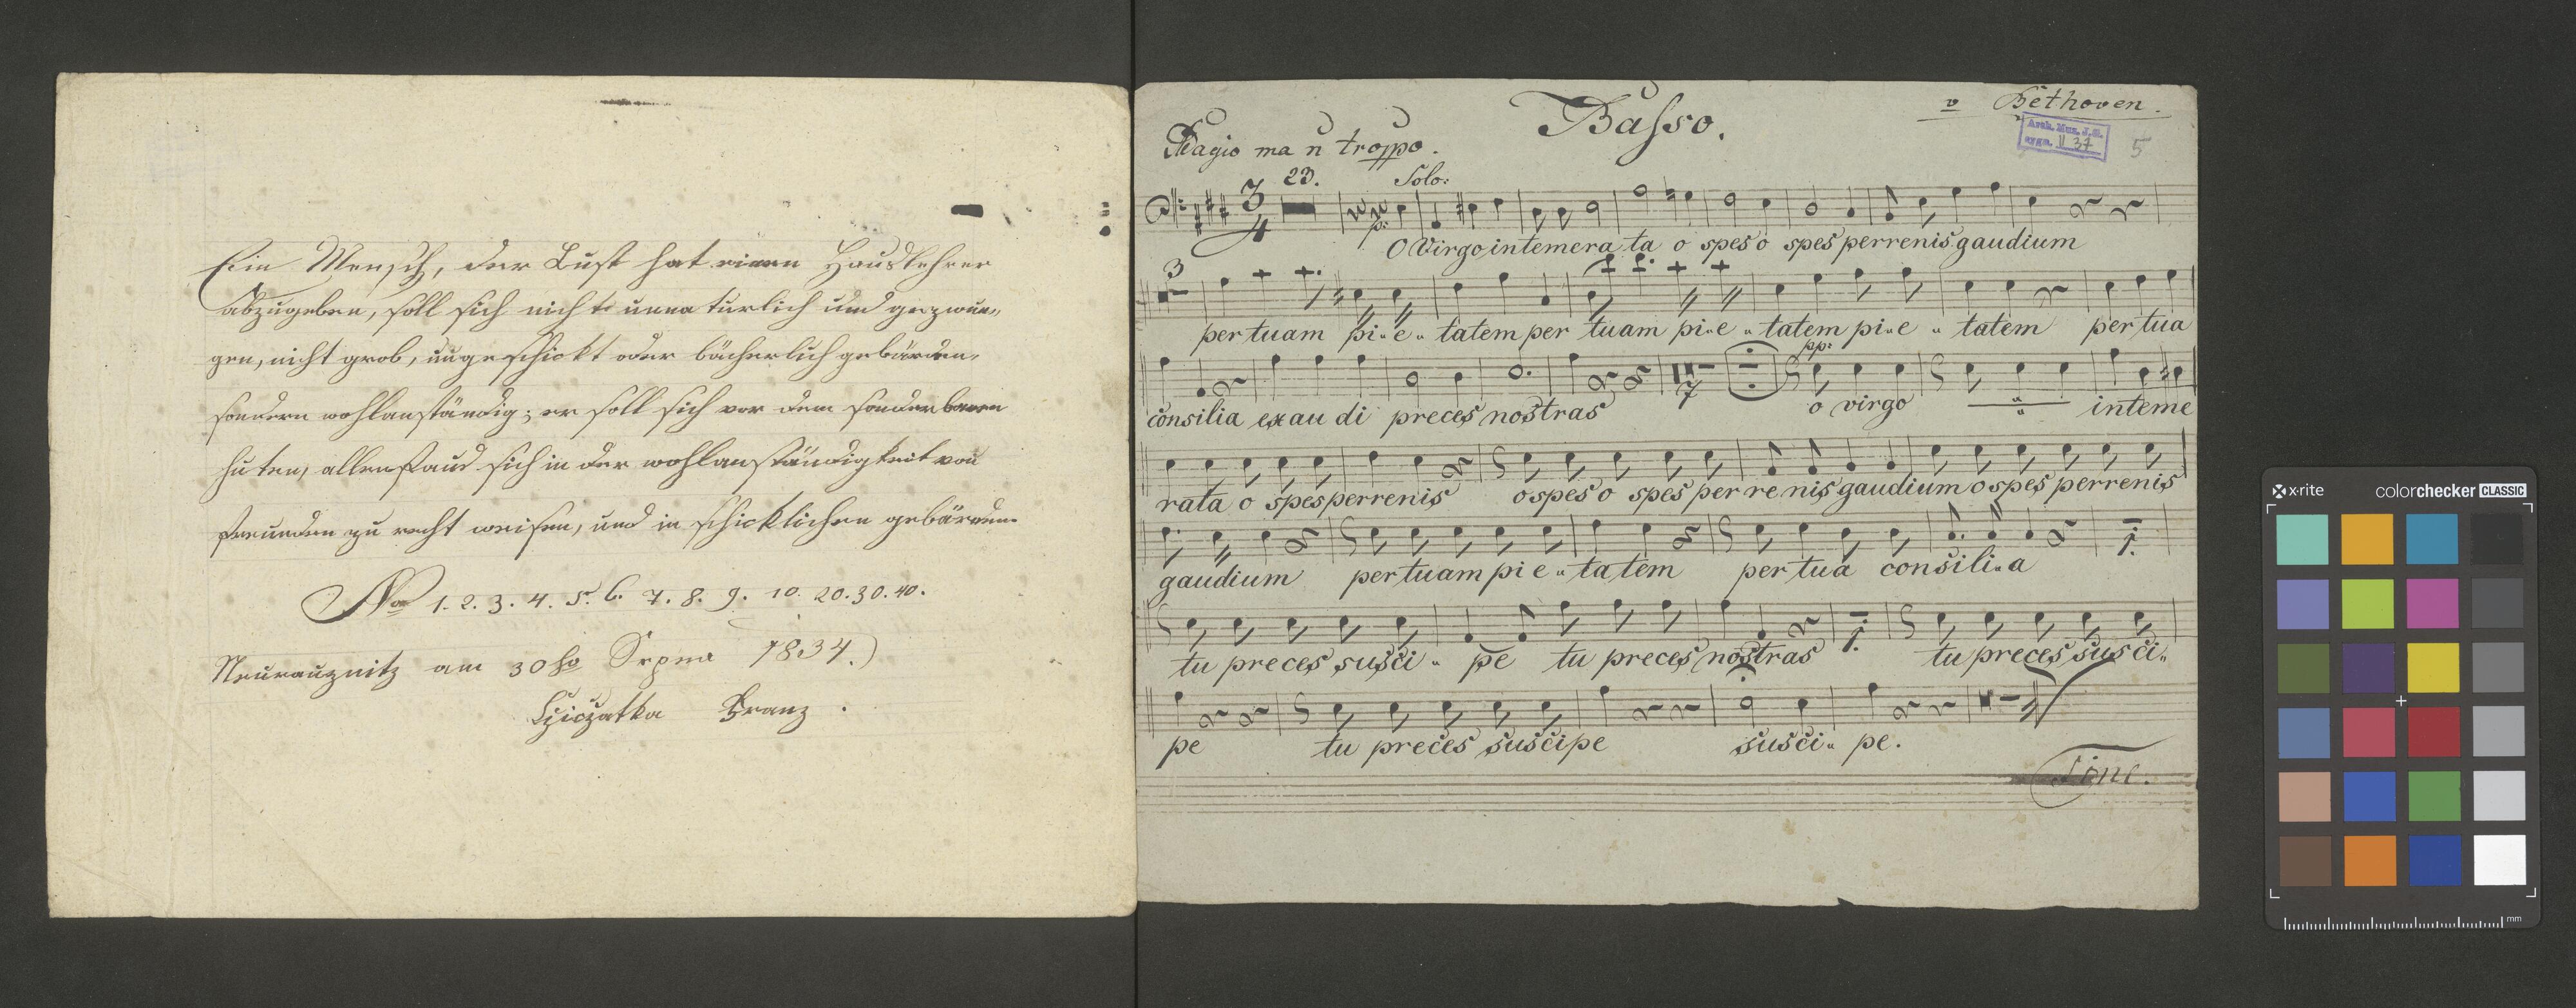 Ein Mensch, der Lust hat einen Hauslehrer
abzugeben, soll sich nicht unnaturlich und gezwun„
gen, nicht grob, ungeschickt oder lächerlich gebärden,
sondern wohlanständig; er soll sich vor dem sonderbaren
huten, sich in der wohlanständigkeit von
freunden zu recht weisen, und in schicklichen gebärden.
No 1. 2. 3. 4. 5. 6. 7. 8. 9. 10. 20. 30. 40.
am 30 Srpna 1834.)
Franz.
v Bethoven.
Basso.
Arch. Muz. J. G.
sygn. II 37
5
Adagio ma n troppo.
3/4 23. p: Solo:
O Virgo intemera ta o spes o spes perrenis gaudium
3
per tuam pi„e„ tatem per tuam pi„e„ tatem pi„e„ tatem per tua
7 pp:
consilia exau di preces nostras o virgo „ inteme
rata o spes perrenis o spes o spes per re nis gaudium o spes perrenis
1.
gaudium per tuam pi e„ta tem per tua consili„a
1.
tu preces susci„ pe tu preces nostras tu preces susci„
pe tu preces suscipe susci„ pe.
Fine.
x-rite colorchecker CLASSIC
mm